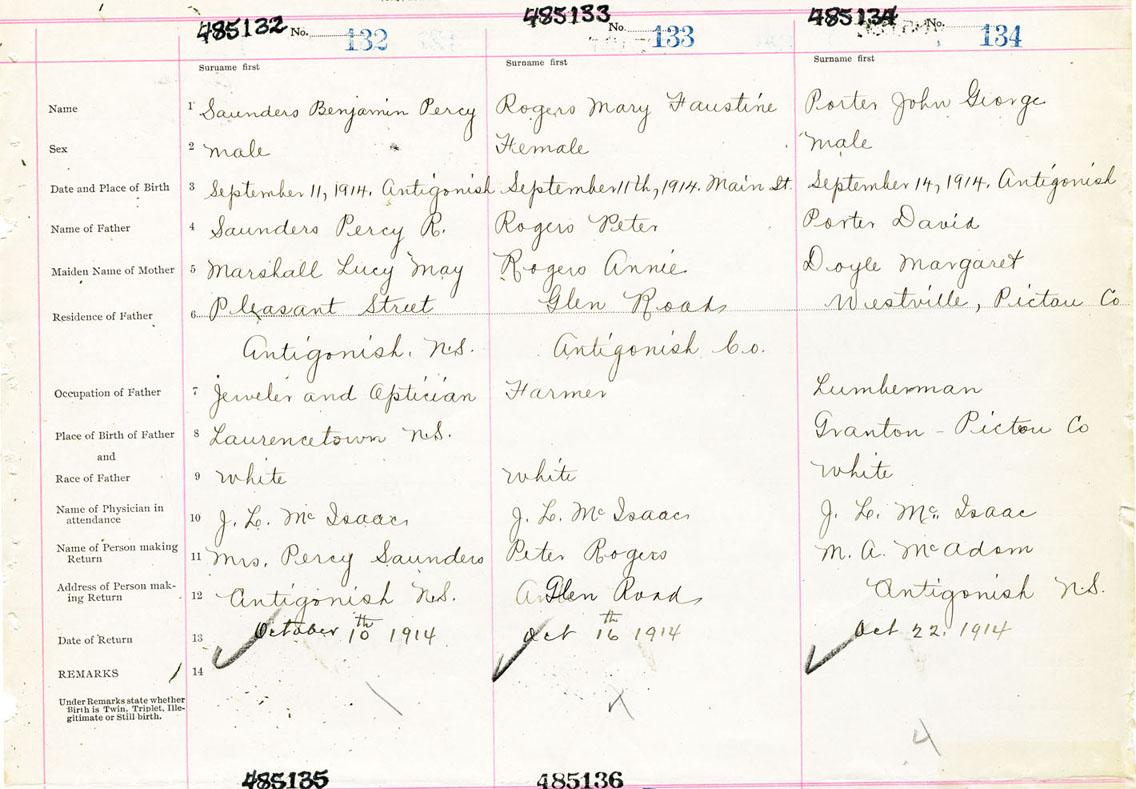 485132 No. 132 485133 No. 133 485134 No. 134
Surname first Surname first Surname first
Name 1 Saunders Benjamin Percy Rogers Mary Faustine Porter John George
Sex 2 male Female male
Date and Place of Birth 3 September 11, 1914. Antigonish September 11th, 1914. Main St. September 14, 1914. Antigonish
Name of Father 4 Saunders Percy R. Rogers Peter Porter David
Maiden Name of Mother 5 Marshall Lucy May Rogers Annie Doyle Margaret
Residence of Father 6 Pleasant Street Glen Road Westville, Pictou Co
Antigonish. N.S. Antigonish Co.
Occupation of Father 7 Jeweler and Optician Farmer Lumberman
Place of Birth of Father 8 Laurencetown N.S. Granton - Pictou Co
and
Race of Father 9 White White White
Name of Physician in
attendance 10 J. L. McIsaac J. L. McIsaac J. L. Mc Isaac
Name of Person making
Return 11 Mrs. Percy Saunders Peter Rogers M. A. McAdam
Address of Person mak-
ing Return 12 Antigonish N.S. Glen Road Antigonish N.S.
Date of Return 13 October 10th 1914 Oct 16th 1914 Oct 22. 1914
REMARKS 14
Under Remarks state whether
Birth is Twin, Triplet, Ille-
gitimate or Still birth.
485135 485136